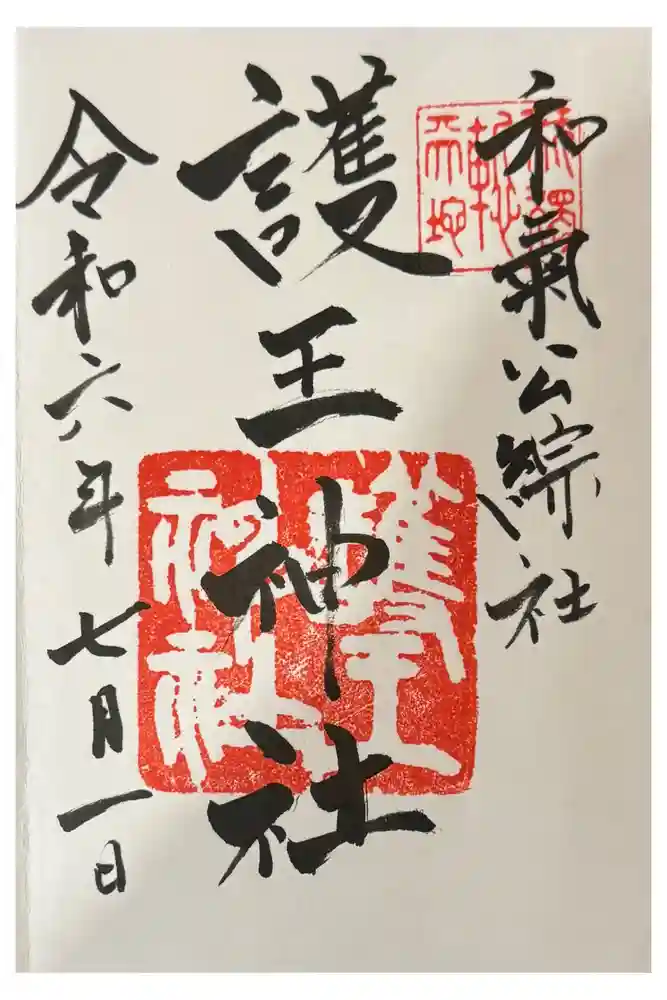 和氣公綜社
護王神社
令和六年七月一日
護王
神社